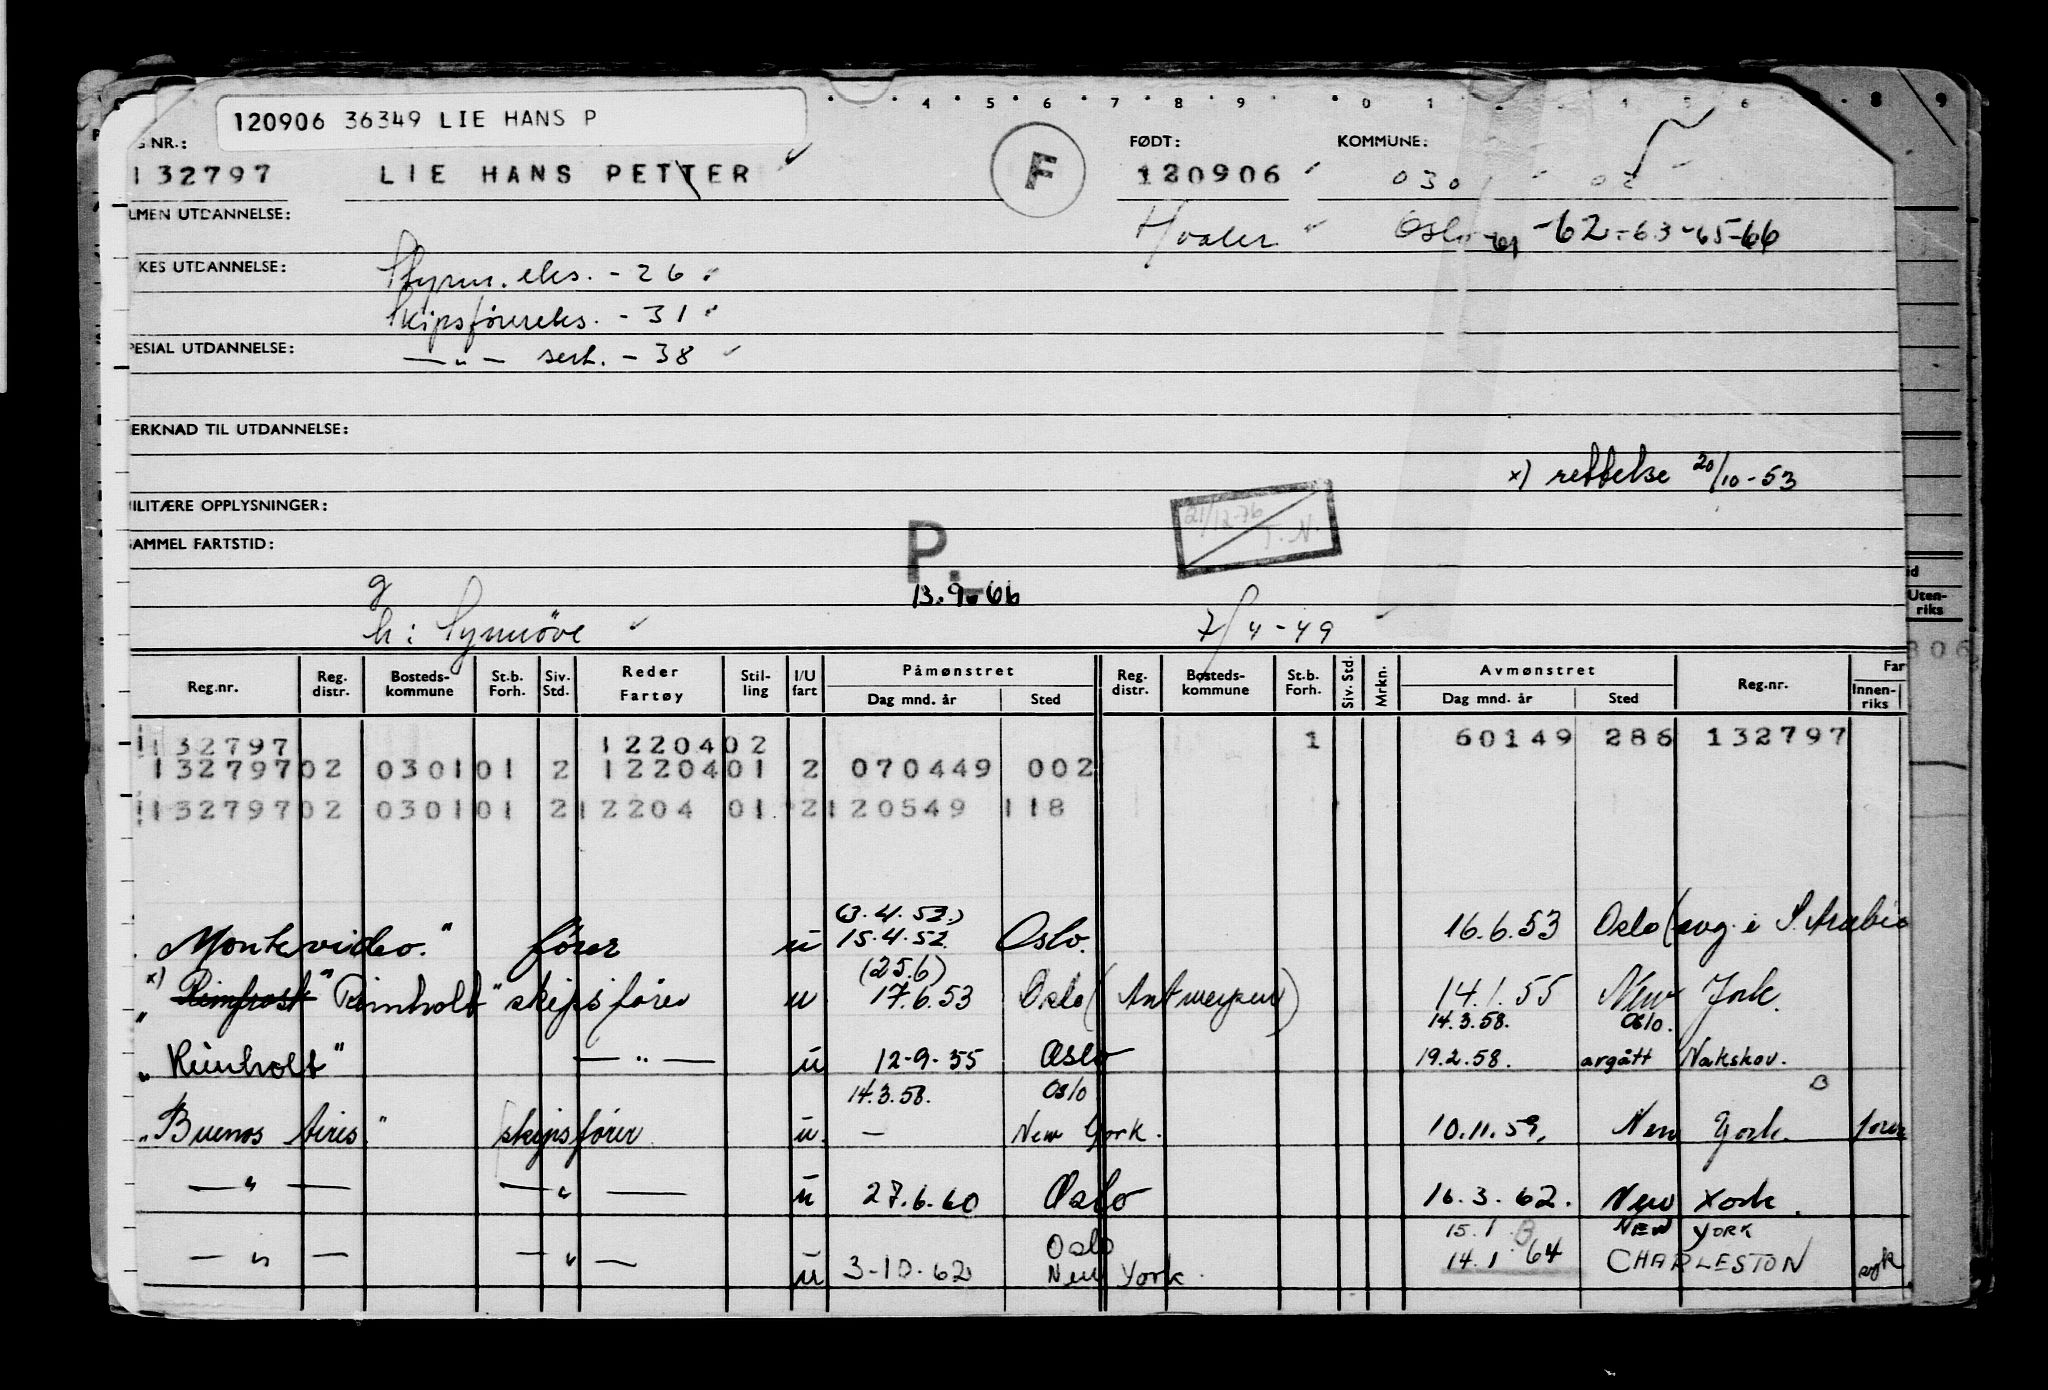 4 5 6 7 8 9 0 1 4 5 6 8 9
120906 36349 LIE HANS P
G.NR.: FØDT: KOMMUNE:
132797 LIE HANS PETTER F 120906 030 02
LMEN UTDANNELSE: Hvaler Oslo -61 -62 -63 -65 -66
KES UTDANNELSE: Styrm. eks. - 26
Skipsførereks. - 31
PESIAL UTDANNELSE: — " — sert. - 38
ERKNAD TIL UTDANNELSE:
x) rettelse 20/10 - 53
ILITÆRE OPPLYSNINGER: 21/12-76 T. N.
SAMMEL FARTSTID: P.
g 13.9.66
h: Synnöve 7/4-49
id
Uten-riks
306
Reg.nr. Reg. distr. Bosteds-kommune St.b. Forh. Siv. Std. Reder Fartøy Stil-ling I/U fart Påmønstret Dag mnd. år Sted Reg. distr. Bosteds-kommune St.b. Forh. Siv. Std. Mrkn. Avmønstret Dag mnd. år Sted Reg.nr. Far Innen-riks
132797 12204 02 1 60149 286 132797
132797 02 0301 01 2 12204 01 2 070449 002
132797 02 0301 01 2 12204 01 2 120549 118
(3.4.52.)
Montevideo." fører u 15.4.52. Oslo. 16.6.53 Oslo (avg. i S. Arabia
(25.6)
x) "Rimfrost" Rimholt" skipsfører u 17.6.53 Oslo (Antwerpen) 14.1.55 New York.
14.3.58. Oslo.
"Rimholt" — " — u 12-9-55 Oslo 19.2.58. avgått Nakskov.
14.3.58. Oslo B
"Buenos Aires." skipsfører u. — New York. 10.11.59. New York. fører
— " — — " — u 27.6.60 Oslo 16.3.62. New York.
Oslo 15.1 B NEW YORK
— " — — " — u 3-10-62 New York. 14.1.64 CHARLESTON